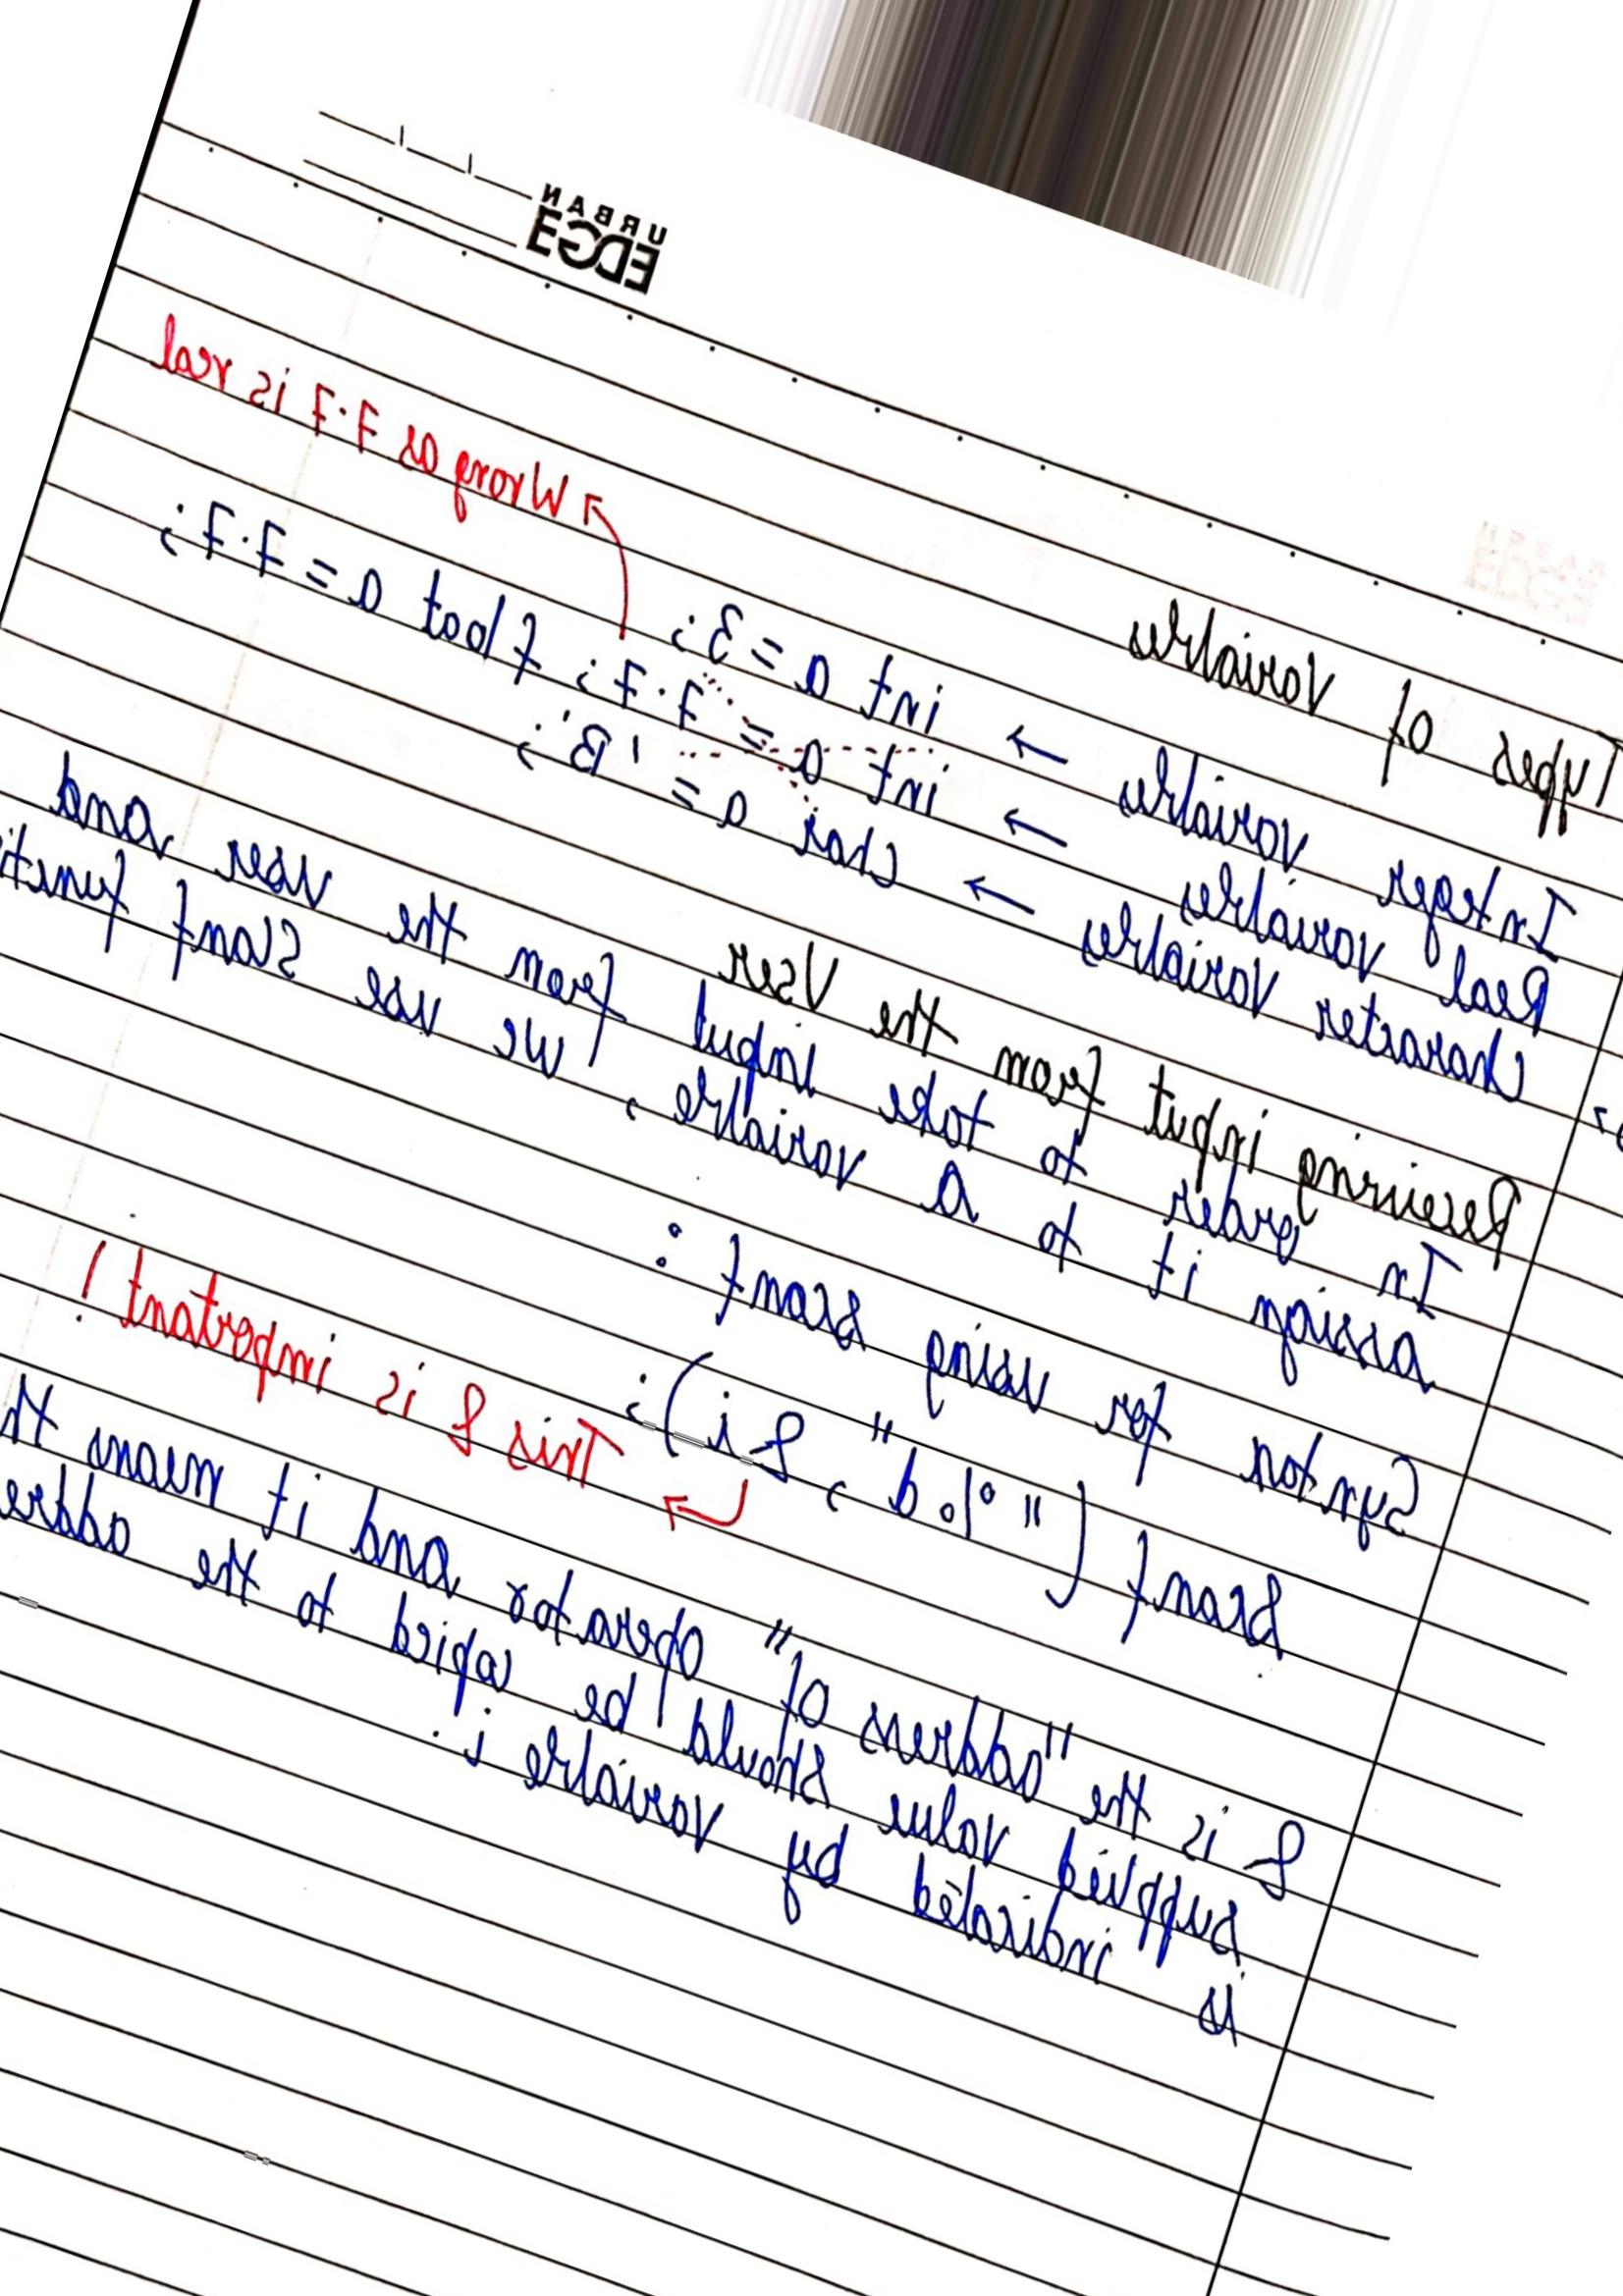 URBAN
EDGE
Types of Variables
Integer variables → int a = 3;
Wrong as 7.7 is real
Real variables → int a = 7.7; float a = 7.7;
Character variables → char a = 'B';
Receiving input from the User
In order to take input from the user and
assign it to a variable, we use scanf functi
Syntax for using scanf :
scanf ( "%d", &i );
This & is important!
& is the "address of" operator and it means th
supplied value should be copied to the addre
is indicated by variable i.